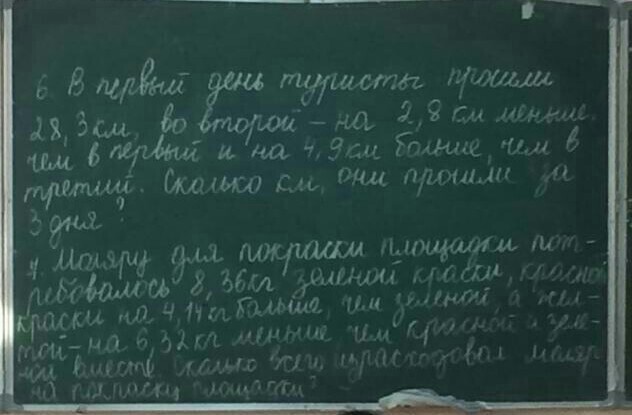 6. В первый день туристы прошли
28,3 км, во второй – на 2,8 км меньше,
чем в первый и на 4,9 км больше, чем в
третий. Сколько км, они прошли за
3 дня?
7. Маляру для покраски площадки пот-
ребовалось 8,36 кг зеленой краски, красной
краски на 4,14 кг больше, чем зеленой, а жел-
той – на 6,32 кг меньше чем красной и зеле-
ной вместе. Сколько всего израсходовал маляр
на покраску площадки?